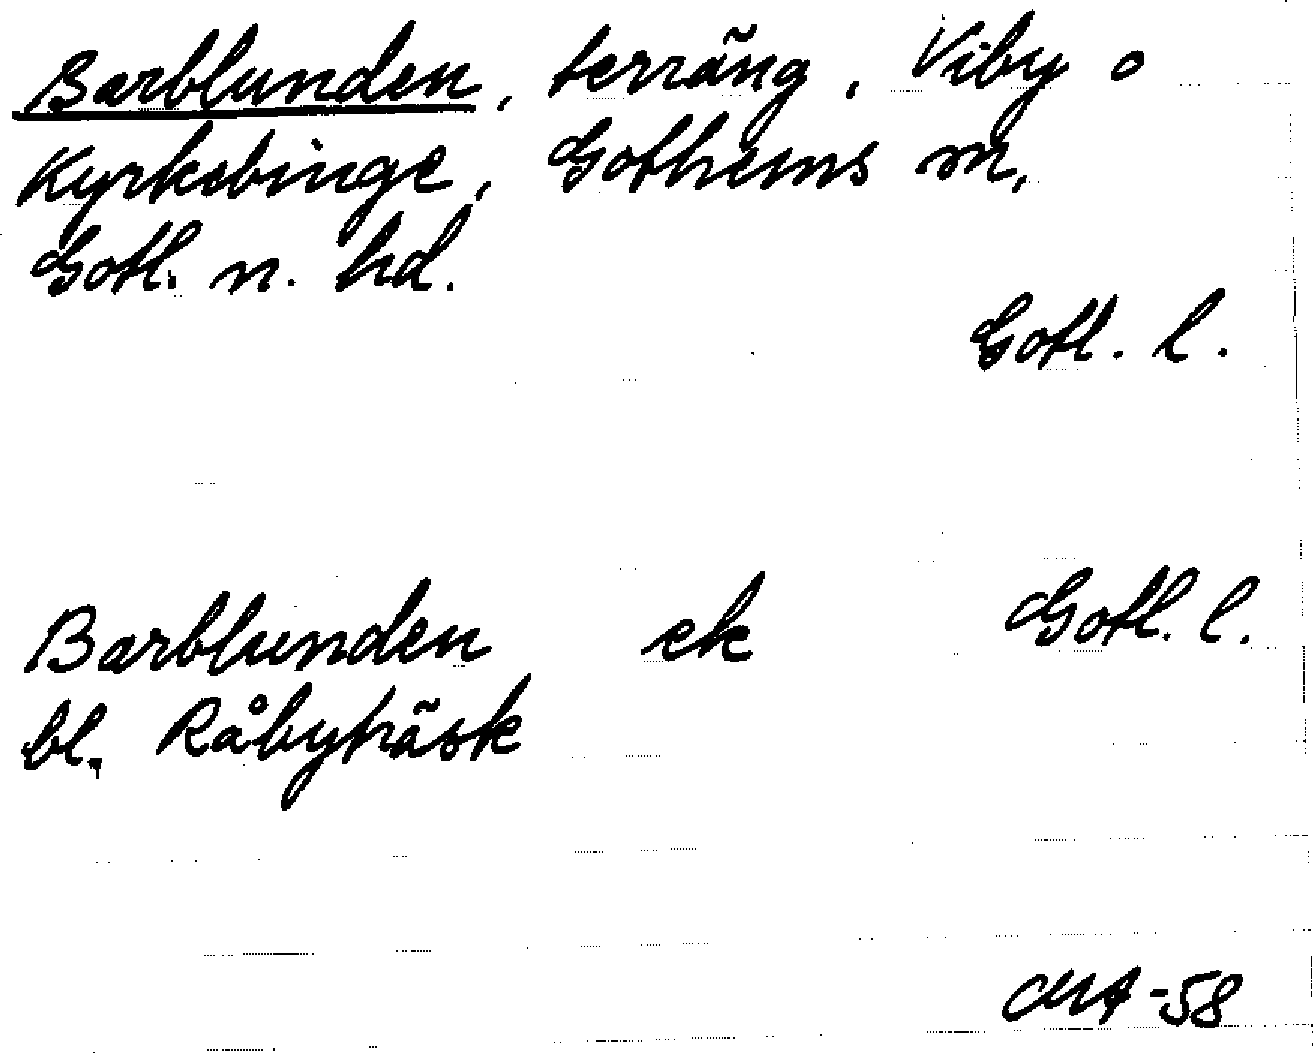 Barblunden, terräng, Viby o
Kyrkebinge, Gothems sn,
Gotl. n. hd.
Gotl. l.
Barblunden ek Gotl. l.
bl. Råbyträsk
-58